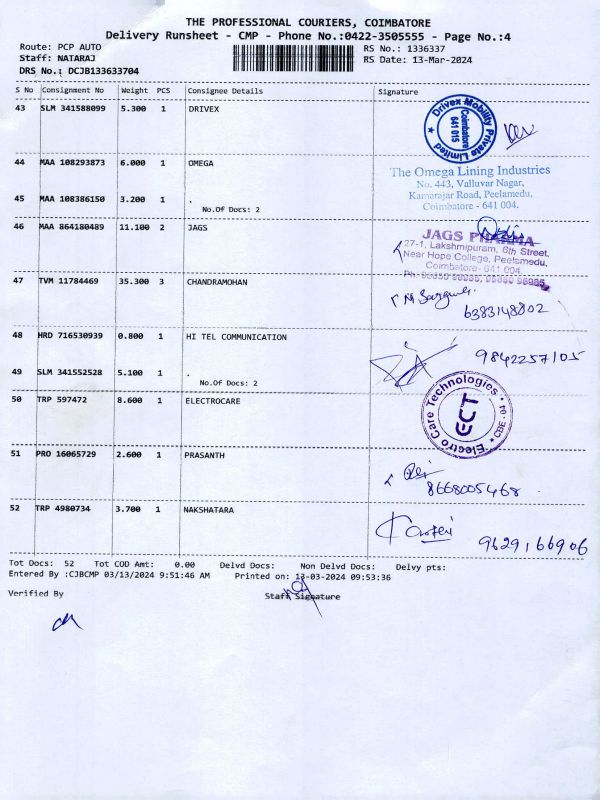 THE PROFESSIONAL COURIERS, COIMBATORE
Delivery Runsheet - CMP - Phone No.:0422-3505555 - Page No.:4
Route: PCP AUTO
RS No.: 1336337
Staff: NATARAJ
RS Date: 13-Mar-2024
DRS No.: DCJB133633704
S No Consignment No Weight PCS Consignee Details Signature
43 SLM 341588099 5.300 1 DRIVEX
Drivex Mobility Private Limited
Coimbatore
641 015
44 MAA 108293873 6.000 1 OMEGA
The Omega Lining Industries
No. 443, Valluvar Nagar,
Kamarajar Road, Peelamedu,
Coimbatore - 641 004.
45 MAA 108386150 3.200 1 .
No.Of Docs: 2
46 MAA 864180489 11.100 2 JAGS
JAGS PHARMA
27-1, Lakshmipuram, 6th Street,
Near Hope College, Peelamedu,
Coimbatore- 641 004.
47 TVM 11784469 35.300 3 CHANDRAMOHAN
6383148802
48 HRD 716530939 0.800 1 HI TEL COMMUNICATION
9842257105
49 SLM 341552528 5.100 1 .
No.Of Docs: 2
50 TRP 597472 8.600 1 ELECTROCARE
Electro Care Technologies
ECT
51 PRO 16065729 2.600 1 PRASANTH
8668005468
52 TRP 4980734 3.700 1 NAKSHATARA
9629166906
Tot Docs: 52 Tot COD Amt: 0.00 Delvd Docs: Non Delvd Docs: Delvy pts:
Entered By :CJBCMP 03/13/2024 9:51:46 AM Printed on: 13-03-2024 09:53:36
Verified By
Staff Signature